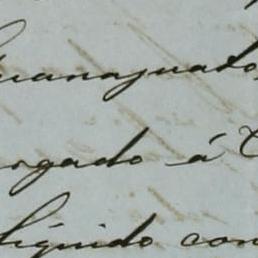 Guanajuato,
ogado á
líquido con